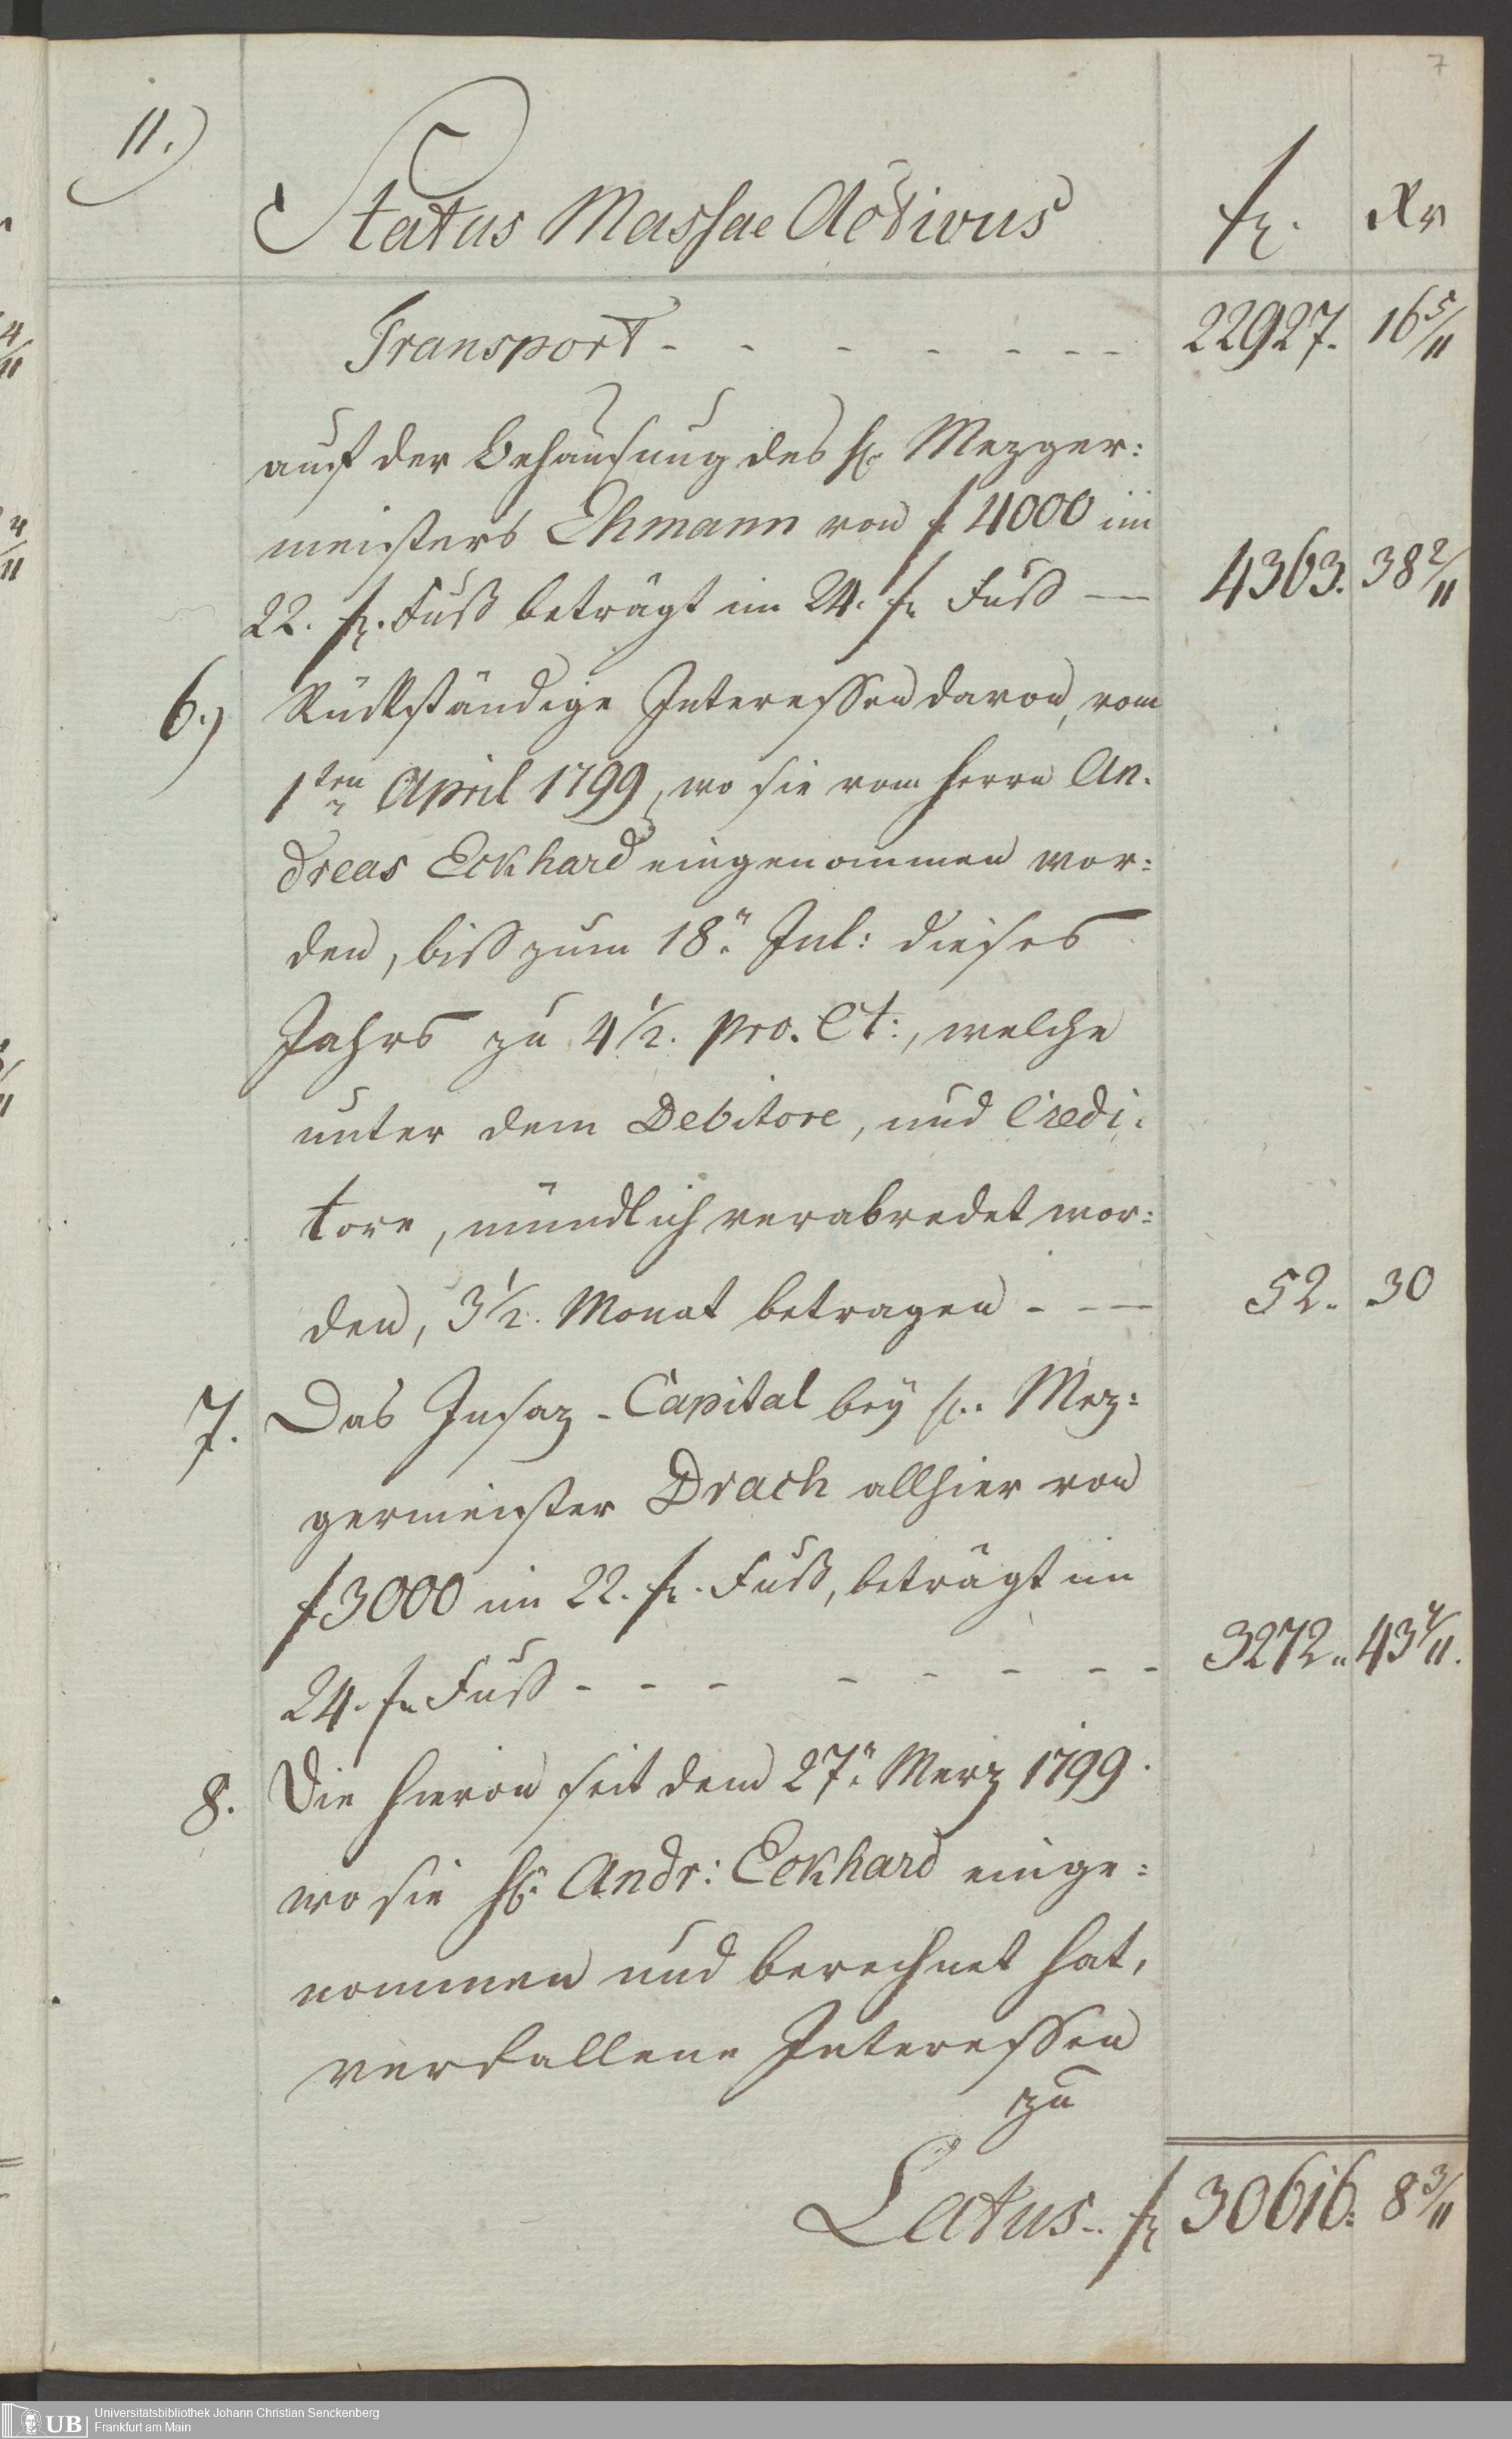 7
11.)
Status Massae Activus f. Xr
Transport - - - - - - - - 22927. 16 5/11
auf der Behausung des H. Mezger:
meisters Ehmann von f 4000 im
22. f. Fuß beträgt im 24. f. Fuß — 4363. 38 2/11
6.) Rückständige Interessen davon, vom
1ten April 1799, wo sie vom Herrn An.
dreas Eckhard eingenommen wor:
den, biß zum 18n Jul: dieses
Jahrs zu 4 1/2. pro. Ct:, welche
unter dem Debitore, und Credi.
tore, mündlich verabredet wor:
den, 3 1/2. Monat betragen - - — 52. 30
7. Das Insaz-Capital bey H. Mez:
germeister Drach allhier von
f 3000 im 22. f. Fuß, beträgt im
24. f. Fuß - - - - - - - - 3272. 43 7/11.
8. Die hievon seit dem 27n Merz 1799.
wo sie H. Andr: Eckhard einge:
nommen und berechnet hat,
verfallene Interessen
zu
Latus.. f 30616. 8 3/11
UB Universitätsbibliothek Johann Christian Senckenberg
Frankfurt am Main